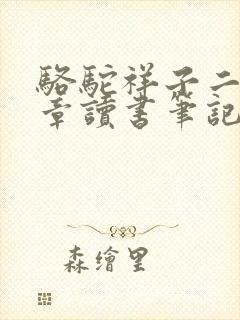 駱駝祥子二
章讀書筆記
森繪里